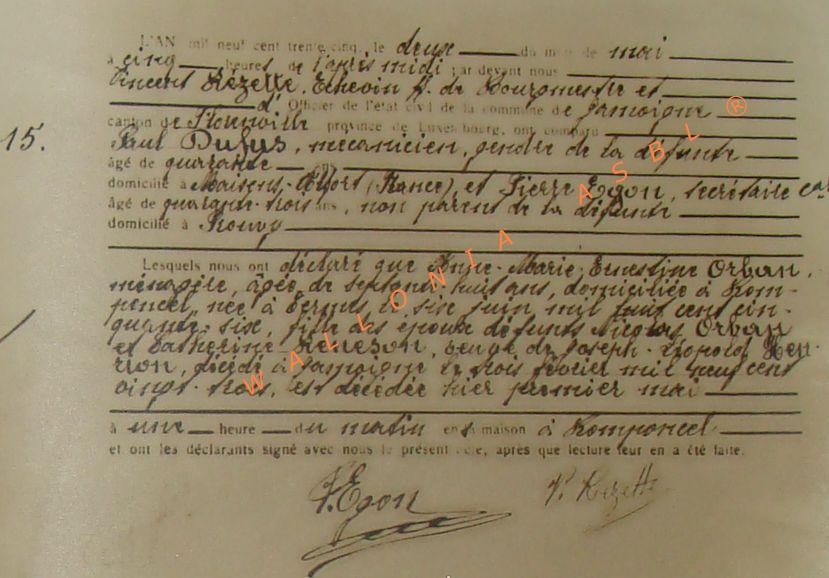 L'AN mil neuf cent trente cinq, le deux du mois de mai
à cinq heures de l'après midi par devant nous
Vincent Rézette, Echevin ff. de Bourgmestre et
d' Officier de l'état civil de la commune de Jamoigne
canton de Florenville province de Luxembourg, ont comparu
15.
Paul Dufus, mécanicien, gendre de la défunte
âgé de quarante ans
domicilié à Maisons-Alfort (France), et Pierre Egon, secrétaire cal
âgé de quarante-trois ans, non parent de la défunte
domicilié à Prouvy
Lesquels nous ont déclaré que Anne-Marie Ernestine Orban,
ménagère, âgée de septante huit ans, domiciliée à Rom-
poncel, née à Termes le six juin mil huit cent cin-
quante-six, fille des époux défunts Nicolas Orban
et Catherine, veuve de Joseph-Léopold Hen-
rion, décédé à Jamoigne le trois février mil neuf cent
vingt-trois, est décédée hier premier mai
à une heure du matin en sa maison à Romponcel
et ont les déclarants signé avec nous le présent acte, après que lecture leur en a été faite.
P. Egon V. Rezette
WALLONIA ASBL ®